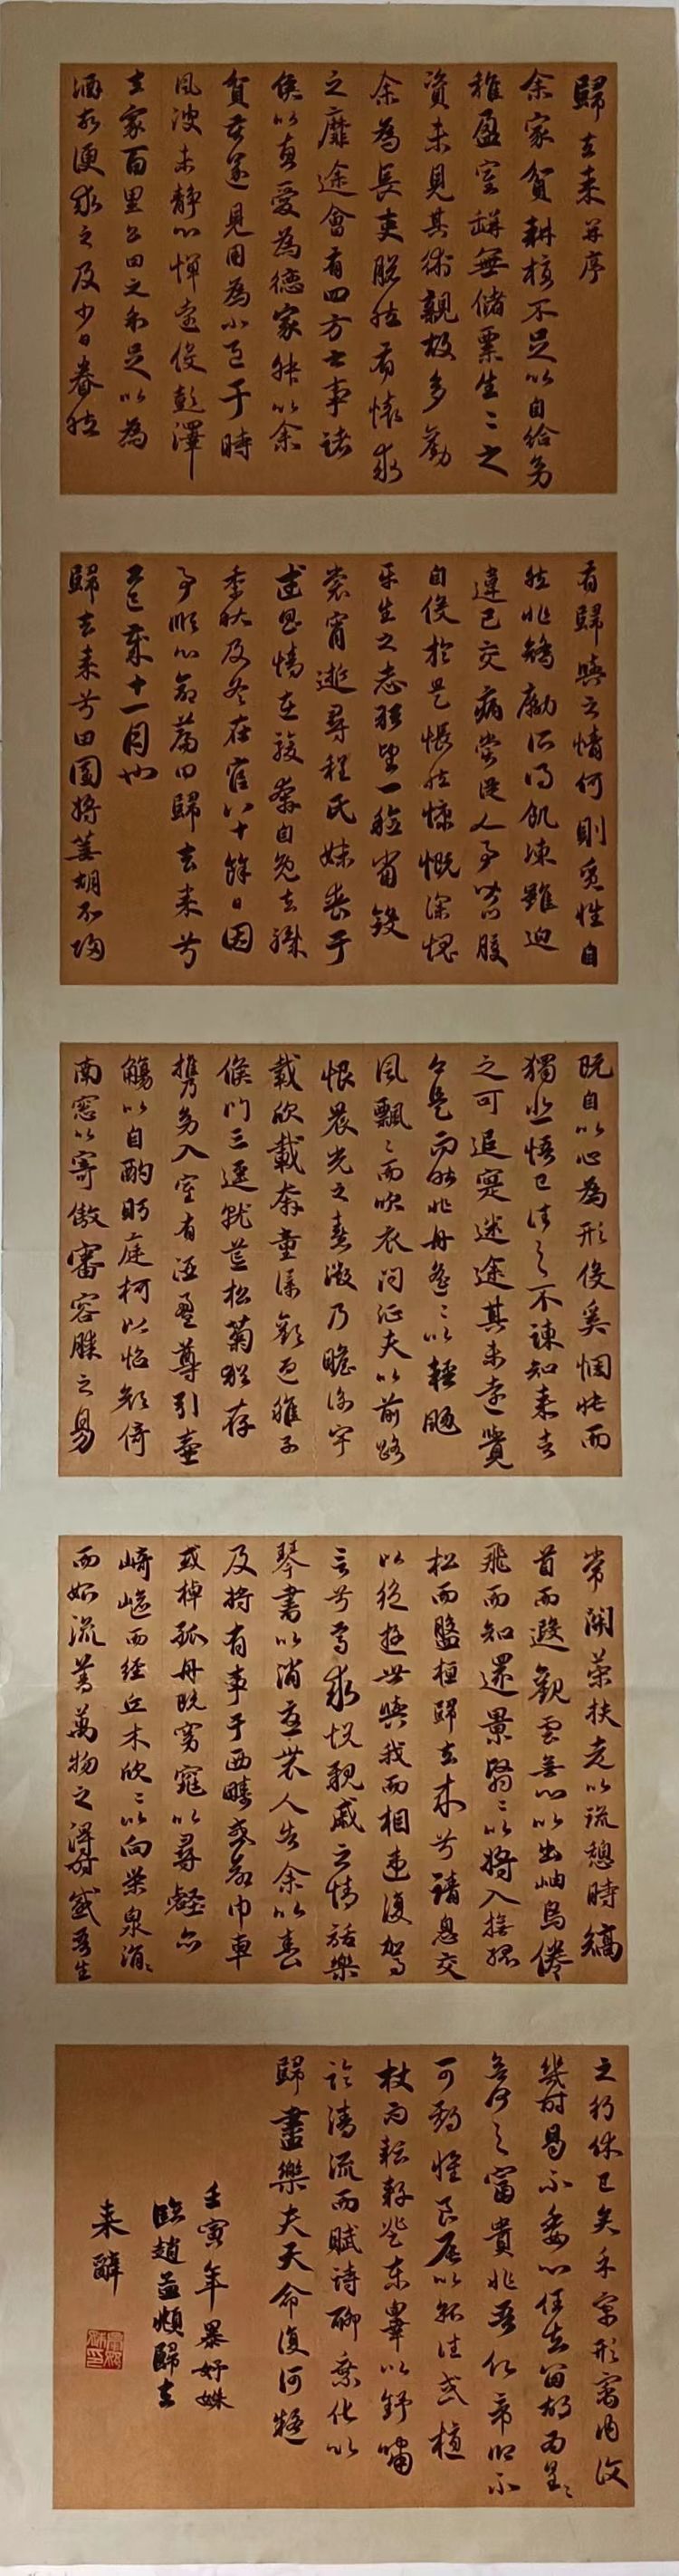 歸去来并序
余家貧耕植不足以自給幼
稚盈室缾無儲粟生﹅之
資未見其術親故多勸
余為長吏脱然有懐求
之靡途會有四方之事諸
侯以惠愛為德家叔以余
貧苦遂見用為小邑于時
風波未静心憚遠役彭澤
去家百里公田之利足以為
酒故便求之及少日眷然
有歸與之情何則質性自
然非矯勵所得飢凍雖迫
違己交病嘗從人事皆口腹
自役於是悵然慷慨深愧
平生之志猶望一稔當斂
裳宵逝尋程氏妹喪于
武昌情在駿奔自免去職
季秋及冬在官八十餘日因
事順心命篇曰歸去来兮
乙巳歲十一月也
歸去来兮田園将蕪胡不歸
既自以心為形役奚惆悵而
獨悲悟已往之不諫知来者
之可追寔迷途其未遠覺
今是而昨非舟遥﹅以輕颺
風飄﹅而吹衣問征夫以前路
恨晨光之熹微乃瞻衡宇
載欣載奔童僕歡迎稚子
候門三逕就荒松菊猶存
攜幼入室有酒盈尊引壺
觴以自酌眄庭柯以怡顔倚
南窓以寄傲審容膝之易
常關策扶老以流憩時矯
首而遐觀雲無心以出岫鳥倦
飛而知還景翳﹅以将入撫孤
松而盤桓歸去来兮請息交
以絶遊世與我而相違復駕
言兮焉求悦親戚之情話樂
琴書以消憂農人告余以春
及将有事于西疇或命巾車
或棹孤舟既窈窕以尋壑亦
崎嶇而経丘木欣﹅以向榮泉涓﹅
而始流善萬物之得時感吾生
之行休已矣乎寓形宇内復
幾時曷不委心任去留胡為遑﹅
欲何之富貴非吾願帝鄉不
可期懐良辰以孤往或植
杖而耘耔登東皋以舒嘯
臨清流而賦詩聊乘化以
歸盡樂夫天命復何疑
壬寅年暴妤姝
臨趙孟頫歸去
来辭